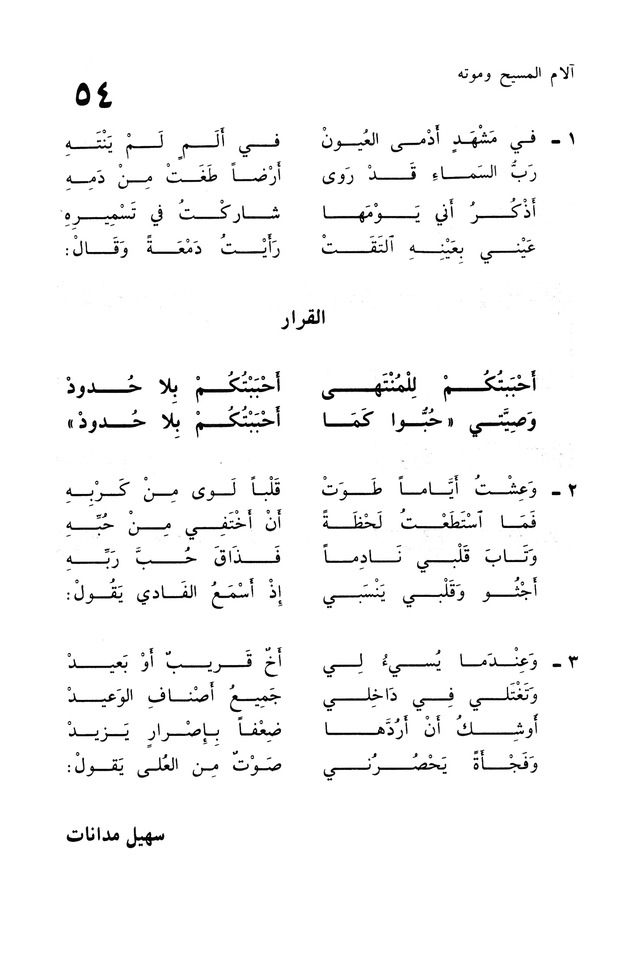 آلام المسيح وموته
٥٤
١ ـ في مَشْهَدٍ أَدْمى العُيونْ في أَلَمٍ لَمْ يَنْتَهِ
رَبُّ السَماءِ قَدْ رَوى أَرْضاً طَغَتْ مِنْ دَمِهِ
أَذْكُرُ أني يَوْمَها شاركْتُ في تَسْميرِهِ
عَيْني بِعَيْنِهِ ٱلتَقَتْ رَأَيْتُ دَمْعَةً وَقالْ:
القرار
أَحْبَبْتُكُمْ لِلْمُنْتَهى أَحْبَبْتُكُمْ بِلا حُدودْ
وَصِيَّتي «حُبُّوا كَمَا أَحْبَبْتُكُمْ بِلا حُدودْ»
٢ ـ وَعِشْتُ أَيَّاماً طَوَتْ قَلْباً لَوى مِنْ كَرْبِهِ
فَمَا ٱسْتَطَعْتُ لَحْظَةً أَنْ أَخْتَفِي مِنْ حُبِّهِ
وَتَابَ قَلْبي نَادِماً فَذَاقَ حُبَّ رَبِّهِ
أَجْثُو وَقَلْبي يَنْتَشي إِذْ أَسْمَعُ الفَادي يَقُولْ:
٣ ـ وَعِنْدَما يُسيءُ لي أَخٌ قَريبٌ أَوْ بَعيدْ
وَتَغْتَلي في دَاخِلي جَميعُ أَصْنافِ الوَعيدْ
أَوشِكُ أَنْ أَرُدَّها ضِعْفاً بِإِصْرارٍ يَزيدْ
وَفَجْأَةً يَحْصُرُني صَوْتٌ مِنَ العُلى يَقولْ:
سهيل مدانات